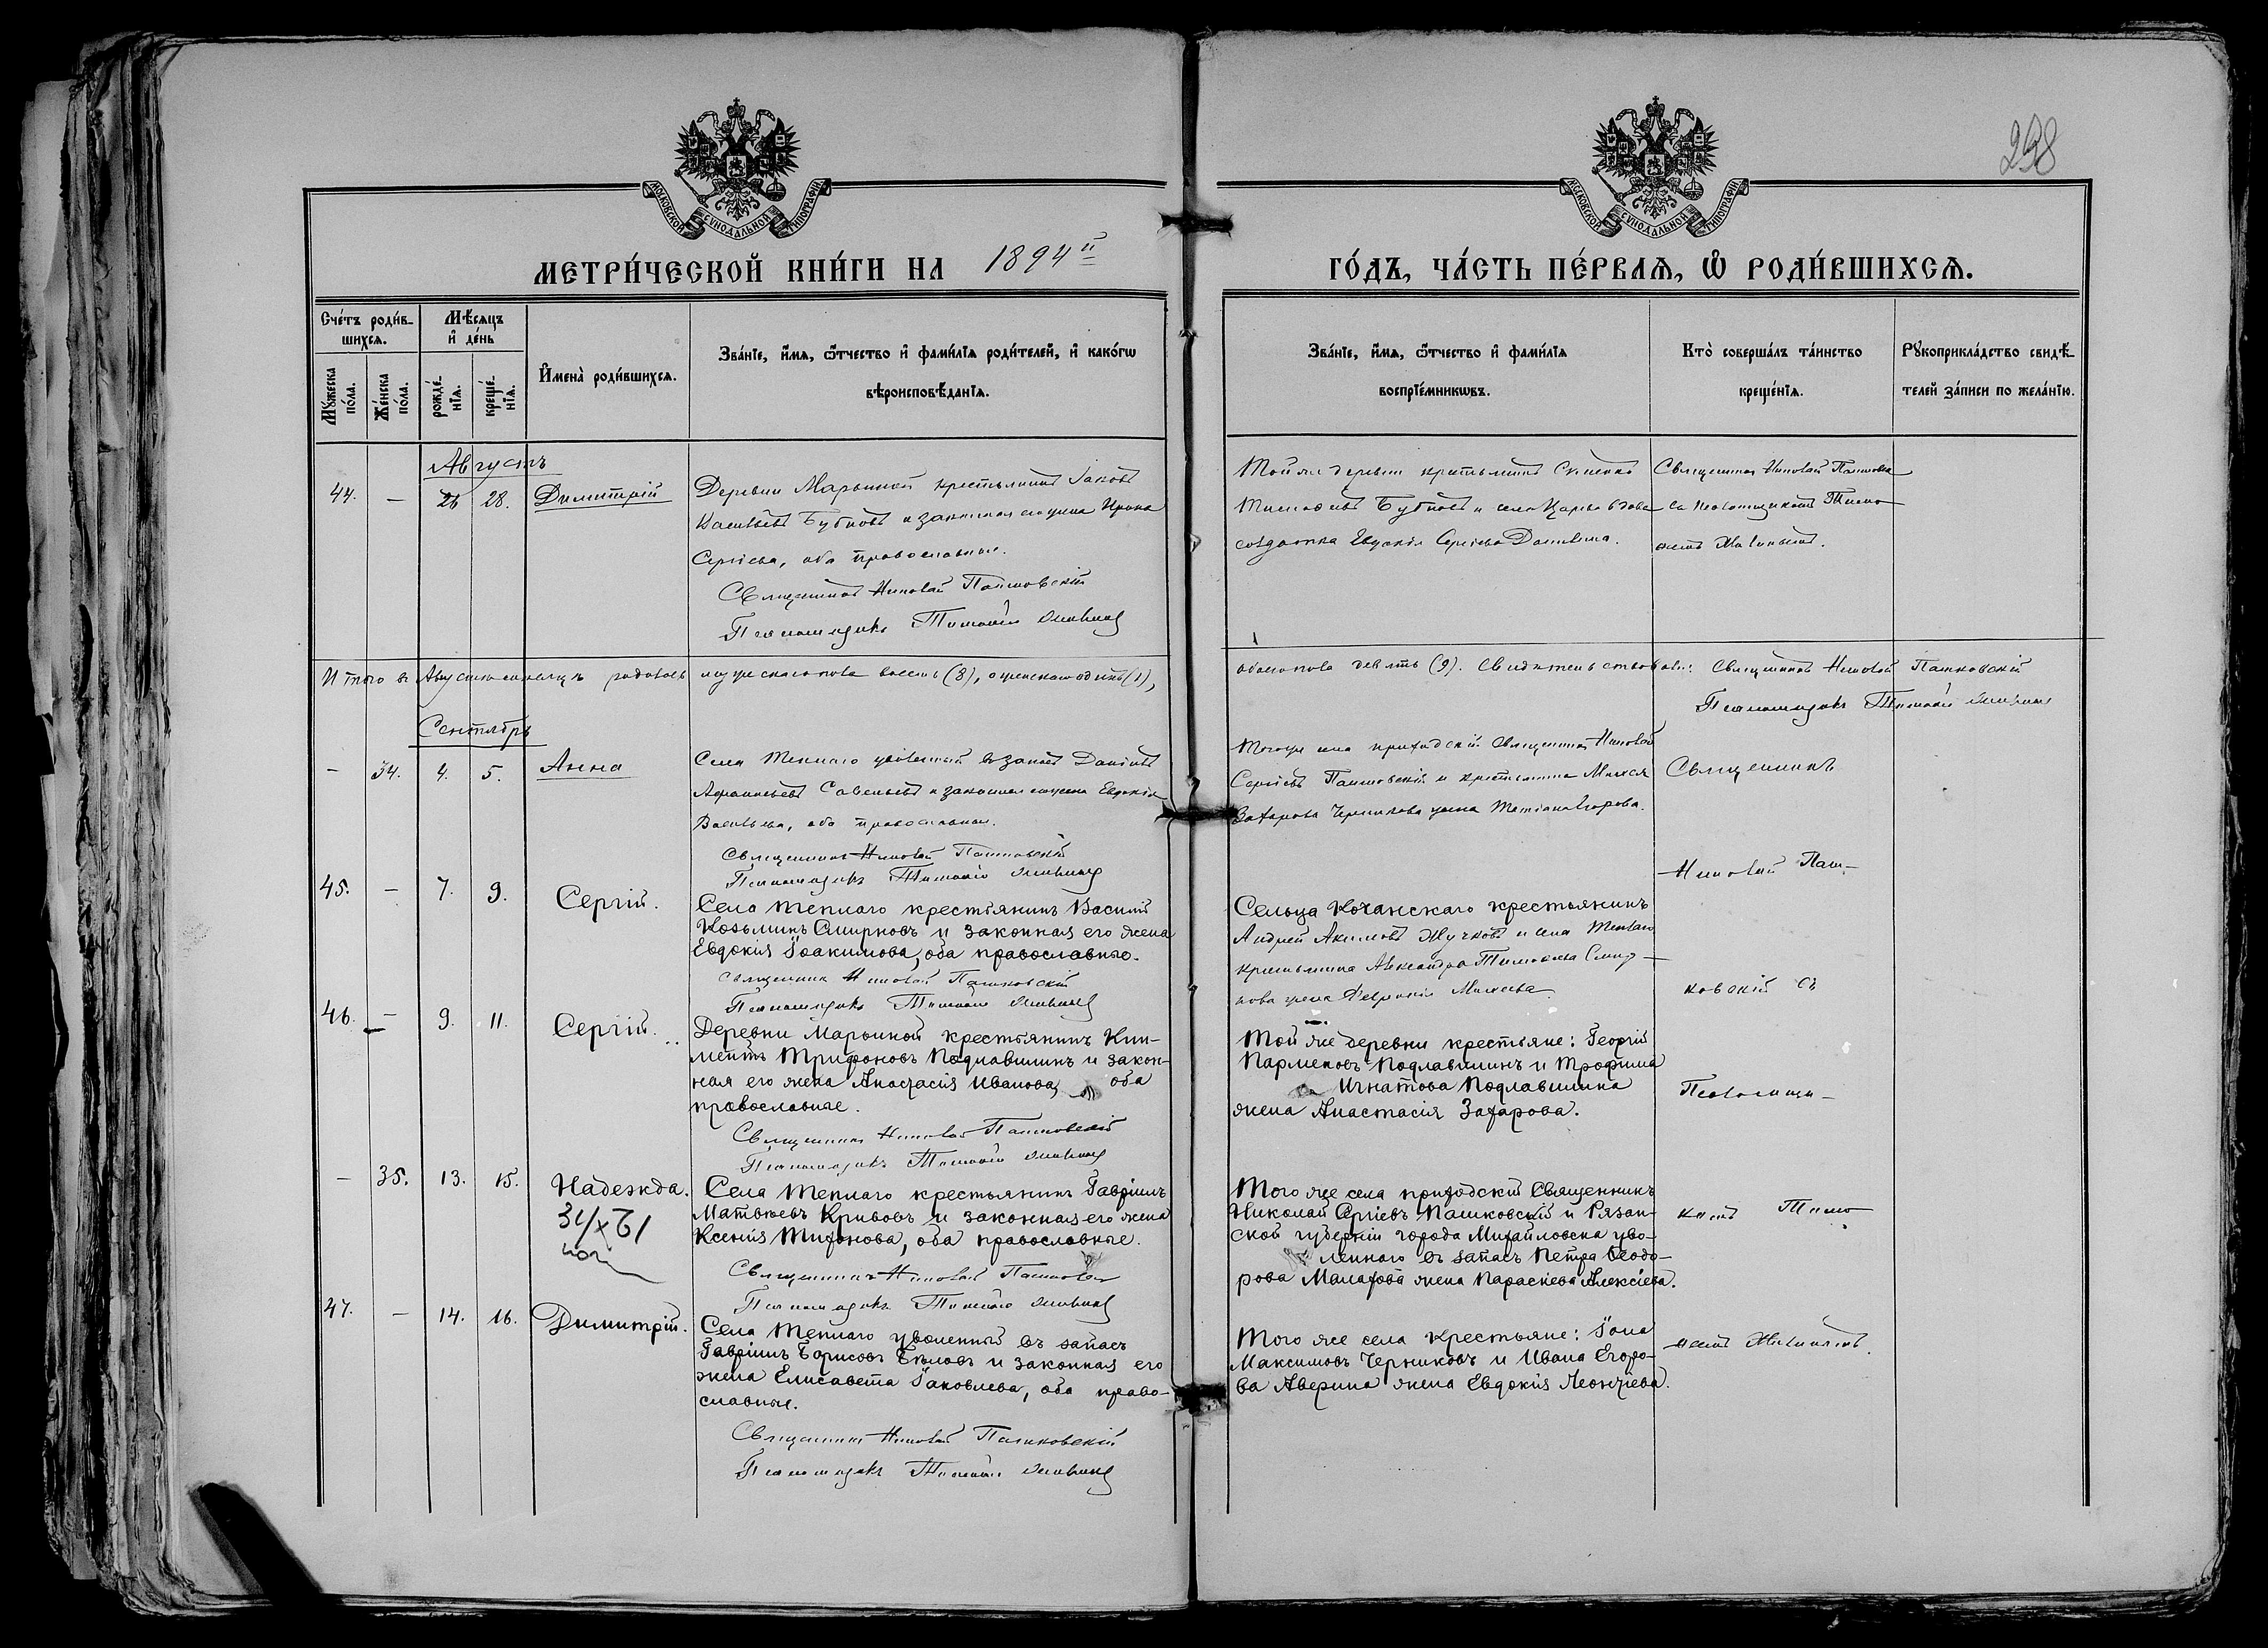 298
МОСКОВСКОЙ СУНОДАЛЬНОЙ ТИПОГРАФІИ
МОСКОВСКОЙ СУНОДАЛЬНОЙ ТИПОГРАФІИ
МЕТРИ́ЧЕСКОЙ КНИ́ГИ НА 1894й
ГО́ДЪ, ЧА́СТЬ ПЕ́РВАЯ, Ѡ РОДИ́ВШИХСЯ.
Сче́тъ роди́в-
шихся.
Мꙋ́жеска
по́ла.
Же́нска
по́ла.
Мѣ́сяцъ
и҆ де́нь
рожде́-
нїя.
креще́-
нїя.
И҆мена̀ роди́вшихся.
Зва́нїе, и҆́мя, ѻ҆́тчество и҆ фами́лїя роди́телей, и҆ како́гѡ
вѣроисповѣ́данїя.
Зва́нїе, и҆́мя, ѻ҆́тчество и҆ фами́лїя
воспрїе́мникѡвъ.
Кто̀ соверша́лъ та́инство
креще́нїя.
Рꙋкоприкла́дство свидѣ́-
телей за́писи по жела́нїю.
Августъ
44. — 26 28. Димитрій
Деревни Марьиной крестьянинъ Іаковъ
Васильевъ Бубновъ и законная его жена Ирина
Сергіева, оба православные.
Священникъ Николай Пашковскій
Псаломщикъ
Той же деревни крестьянинъ
Бубновъ и села
солдатка Евдокія Сергіева
Священникъ Николай Пашковскій
съ псаломщикомъ Тимо-
Итого въ Августѣ мѣсяцѣ родилось мужескаго пола восемь (8), женскаго одинъ (1),
обоего пола девять (9). Свидѣтельствовали: Священникъ Николай Пашковскій
Псаломщикъ
Сентябрь
— 34. 4. 5. Анна
Села Теплаго уволенный въ запасъ Даніилъ
Савельевъ и законная его жена Евдокія
Васильева, оба православные.
Священникъ Николай Пашковскій
Псаломщикъ
Тогоже села приходскій Священникъ Николай
Сергіевъ Пашковскій и крестьянина
Захарова Черникова жена Татіана Егорова.
Священникъ
Николай Паш-
45. — 7. 9. Сергій.
Села Теплаго крестьянинъ Василій
Козьминъ Смирновъ и законная его жена
Евдокія Іоакимова, оба православные.
Священникъ Николай Пашковскій
Псаломщикъ
Сельца Кочанскаго крестьянинъ
Андрей Акимовъ Жучковъ и села Теплаго
крестьянина Александра Тимофеева Смир-
нова жена
ковскій съ
46. — 9. 11. Сергій.
Деревни Марьиной крестьянинъ Кли-
ментъ Трифоновъ Подлавилинъ и закон-
ная его жена Анастасія Иванова, оба
православные.
Священникъ Николай Пашковскій
Псаломщикъ
Той же деревни крестьяне: Георгій
Парменовъ Подлавилинъ и Трофима
Игнатова Подлавилина
жена Анастасія Захарова.
Псаломщи-
— 35. 13. 15. Надежда.
Села Теплаго крестьянинъ Гавріилъ
Матвѣевъ Кривовъ и законная его жена
Ксенія Тихонова, оба православные.
Священникъ Николай Пашковскій
Псаломщикъ
Того же села приходскій Священникъ
Николай Сергіевъ Пашковскій и Рязан-
ской губерніи города Михайловска уво-
леннаго въ запасъ Петра Ѳеодо-
рова Малахова жена Параскева Алексіева.
комъ Тимо-
47. — 14. 16. Димитрій.
Села Теплаго уволенный въ запасъ
Гавріилъ Борисовъ Бѣловъ и законная его
жена Елисавета Іаковлева, оба право-
славные.
Священникъ Николай Пашковскій
Псаломщикъ
Того же села крестьяне: Іона
Максимовъ Черниковъ и Ивана Егоро-
ва Аверина жена Евдокія Леонтіева.